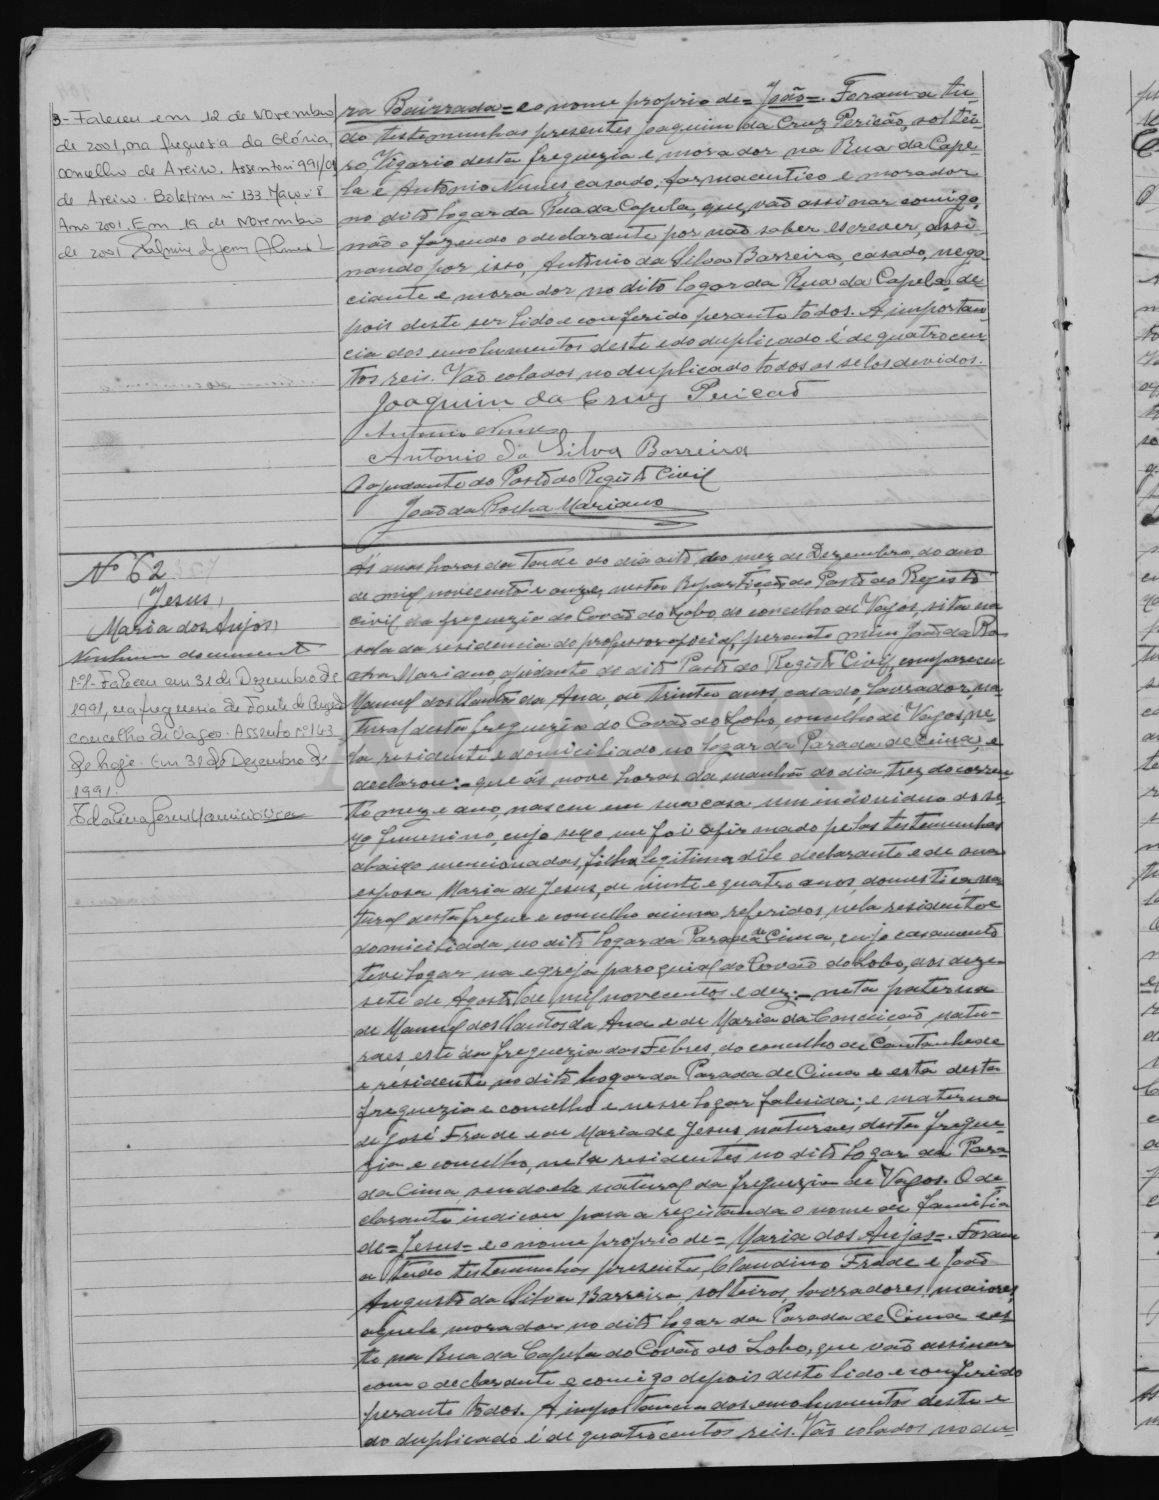 3- Faleceu em 12 de Novembro
de 2001, na freguesia da Glória,
concelho de Aveiro. Assento nº 991/01
de Aveiro. Boletim nº 133 Maço nº 8
Ano 2001. Em 19 de Novembro
de 2001
ra Bairrada = e o nome proprio de = João =. Foram a tu-
do testemunhas presentes Joaquim da Cruz Pericão, soltei-
ro Vigario desta freguezia e morador na Rua da Cape-
la e Antonio Nunes, casado, farmaceutico e morador
no dito logar da Rua da Capela, que vão assinar comigo,
não o fazendo o declarante por não saber escrever, assi-
nando por isso, Antonio da Silva Barreira, casado, nego-
ciante e morador no dito logar da Rua da Capela, de-
pois deste ser lido e conferido perante todos. A importan-
cia dos emolumentos deste e do duplicado é de quatrocen-
tos reis. Vão colados no duplicado todos os selos devidos.
Joaquim da Cruz Pericão
Antonio Nunes
Antonio da Silva Barreira
O ajudante do Posto do Registo Civil
João da Rocha Mariano
Nº 62
(Jesus)
Maria dos Anjos
Nenhum documento
Nº1- Faleceu em 31 de Dezembro de
1991, na freguesia de Fonte de Angeão
concelho de Vagos. Assento nº 143
de hoje. Em 31 de Dezembro de
1991.
Ás duas horas da tarde do dia oito do mez de Dezembro, do ano
de mil novecentos e onze, nesta Repartição do Posto do Registo
civil da freguezia do Covão do Lobo, do concelho de Vagos, sita na
sala da residencia do professor oficial, perante mim João da Ro-
cha Mariano, ajudante do dito Posto do Registo Civil, compareceu
Manuel dos Santos da Ana, de trinta anos, casado, lavrador, na-
tural desta freguezia do Covão do Lobo, concelho de Vagos, ne-
la residente e domiciliado no logar da Parada de Cima, e
declarou: - que ás nove horas da manhã do dia trez do corren-
te mez e ano, nasceu em sua casa um individuo do se-
xo femenino, cujo sexo me foi afirmado pelas testemunhas
abaixo mencionadas, filha legitima dêle declarante e de sua
esposa Maria de Jesus, de vinte e quatro anos, domestica, na-
tural desta fregue e concelho acima referidos, nela residente e
domiciliada no dito logar da Parada de Cima, cujo casamento
teve logar na egreja paroquial do Covão do Lobo, aos deze-
sete de Agosto de mil novecentos e dez: - neta paterna
de Manuel dos Santos da Ana e de Maria da Conceição, natu-
raes, este da freguezia dos Febres, do concelho de Cantanhede
e residente no dito logar da Parada de Cima e esta desta
freguezia e concelho e nesse logar falecida; e materna
de José Frade e de Maria de Jesus, naturaes desta fregue-
zia e concelho, nela residentes no dito logar da Para-
da Cima, sendo ela natural da freguezia de Vagos. O de-
clarante indicou para a registanda o nome de familia
de = Jesus = e o nome proprio de = Maria dos Anjos =. Foram
a tudo testemunhas presentes, Claudino Frade e João
Augusto da Silva Barreira, solteiros, lavradores, maiores,
aquele morador no dito logar da Parada de Cima e es-
te na Rua da Capela do Covão do Lobo, que vão assinar
com o declarante e comigo depois deste lido e conferido
perante todos. A importancia dos emolumentos deste e
do duplicado é de quatrocentos reis. Vão colados no du-